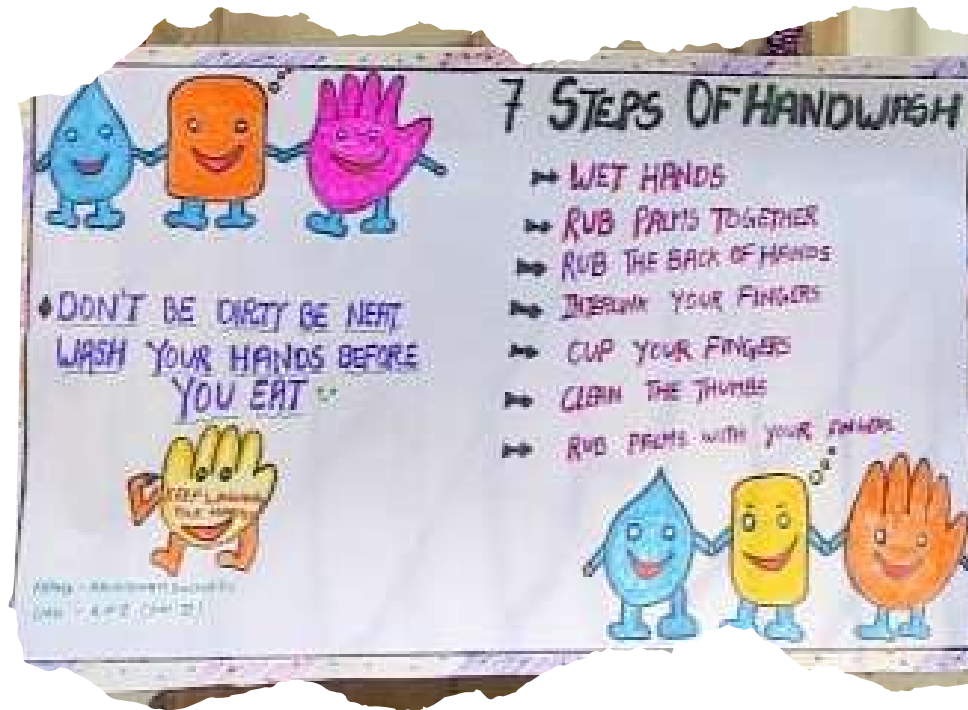 DON'T BE DIRTY BE NEAT
WASH YOUR HANDS BEFORE
YOU EAT
7 STEPS OF HANDWASH
WET HANDS
RUB PALMS TOGETHER
RUB THE BACK OF HANDS
INTERLINK YOUR FINGERS
CUP YOUR FINGERS
CLEAN THE THUMBS
RUB PALMS WITH YOUR FINGERS